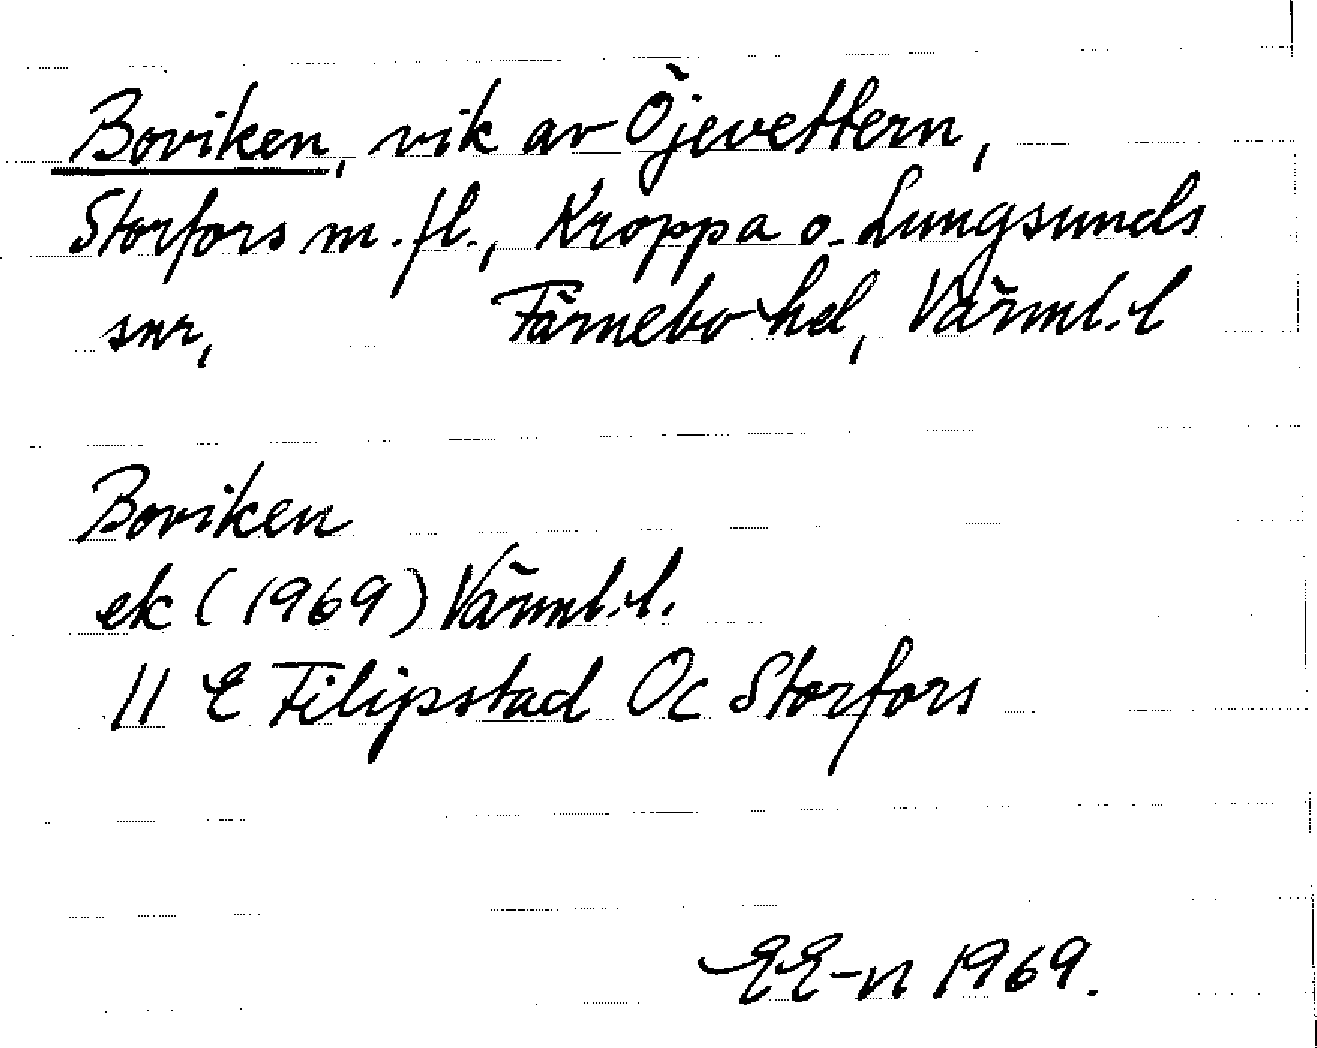 Boviken, vik av Öjevettern,
Storfors m. fl., Kroppa o. Lungsunds
snr, Färnebo hd, Värml. l
Boviken
ek (1969) Värml. l.
11 E Filipstad Oc Storfors
EE-n 1969.